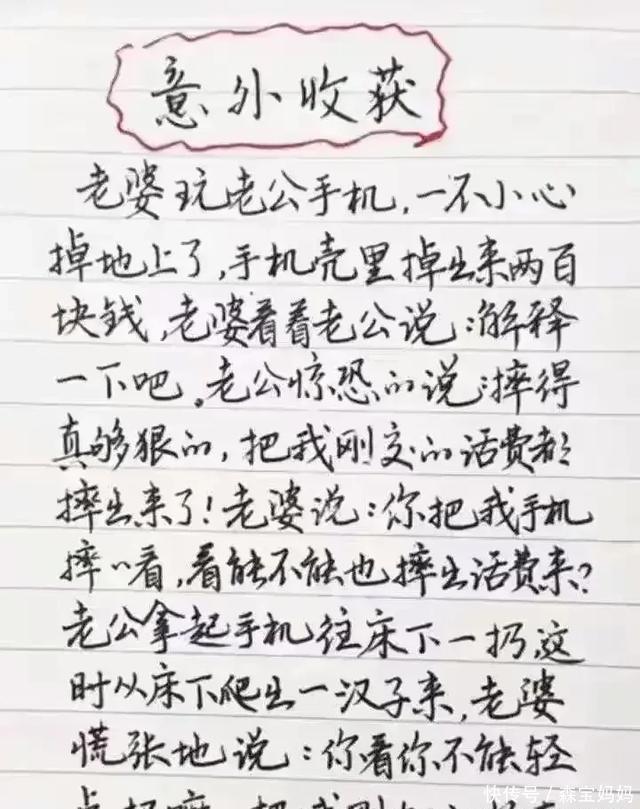 意外收获
老婆玩老公手机,一不小心
掉地上了,手机壳里掉出来两百
块钱,老婆看着老公说:解释
一下吧。老公惊恐的说:摔得
真够狠的,把我刚交的话费都
摔出来了!老婆说:你把我手机
摔看,看能不能也摔出话费来?
老公拿起手机往床下一扔,这
时从床下爬出一汉子来,老婆
慌张地说:你看你不能轻
快传号/森宝妈妈